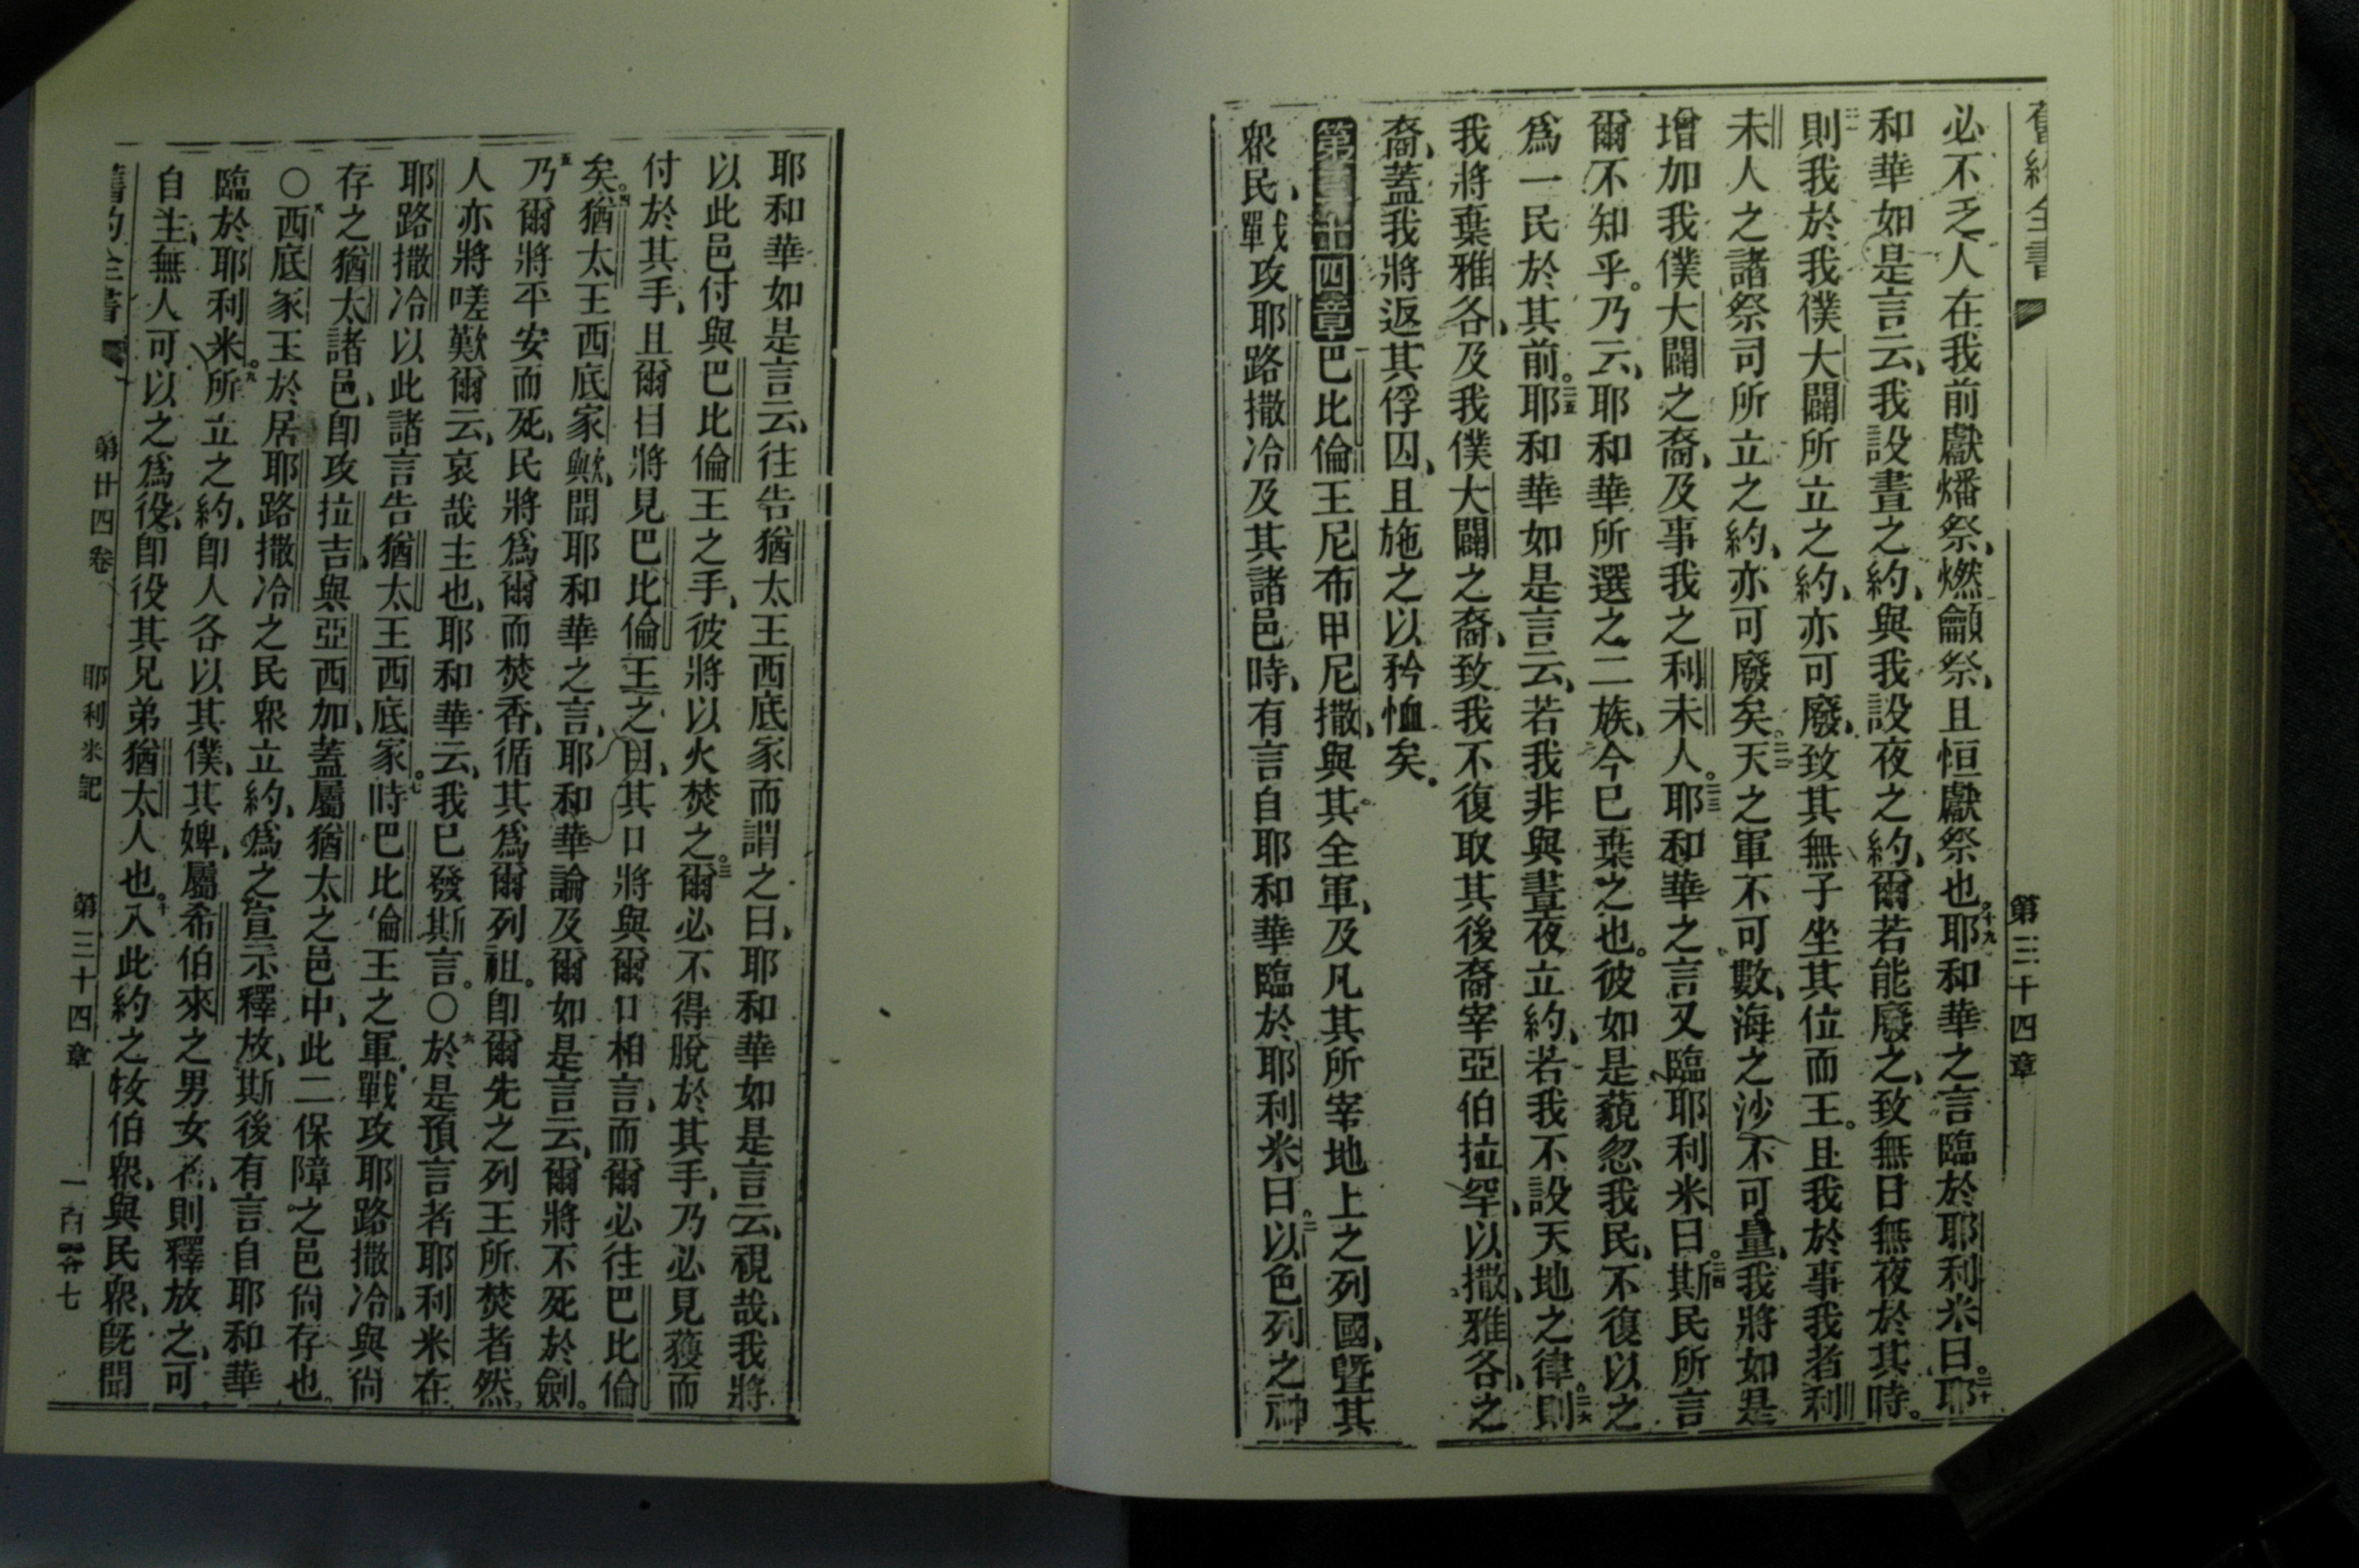 舊約全書 第三十四章
必不乏人在我前獻燔祭、燃龥祭、且恒獻祭也。十九耶和華之言臨於耶利米曰。二十耶
和華如是言云、我設晝之約、與我設夜之約、爾若能廢之、致無日無夜於其時。
二一則我於我僕大闢所立之約、亦可廢、致其無子坐其位而王。且我於事我者利
未人之諸祭司所立之約、亦可廢矣。二二天之軍不可數、海之沙不可量、我將如是
增加我僕大闢之裔、及事我之利未人。二三耶和華之言又臨耶利米曰。二四斯民所言
爾不知乎。乃云、耶和華所選之二族、今已棄之也。彼如是藐忽我民、不復以之
爲一民於其前。二五耶和華如是言云、若我非與晝夜立約、若我不設天地之律、二六則
我將棄雅各、及我僕大闢之裔、致我不復取其後裔宰亞伯拉罕、以撒、雅各、之
裔、蓋我將返其俘囚、且施之以矜恤矣。
第三十四章巴比倫王尼布甲尼撒、與其全軍、及凡其所宰地上之列國、曁其
衆民、戰攻耶路撒冷及其諸邑時、有言自耶和華臨於耶利米曰。二以色列之神
耶和華如是言云、往告猶太王西底家而謂之曰、耶和華如是言云、視哉、我將
以此邑付與巴比倫王之手、彼將以火焚之。三爾必不得脫於其手、乃必見獲而
付於其手、且爾目將見巴比倫王之目、其口將與爾口相言、而爾必往巴比倫
矣。四猶太王西底家歟、聞耶和華之言、耶和華論及爾如是言云、爾將不死於劍。
五乃爾將平安而死、民將爲爾而焚香、循其爲爾列祖。卽爾先之列王所焚者然。
人亦將嗟歎爾云、哀哉主也、耶和華云、我已發斯言。〇六於是預言者耶利米在
耶路撒冷以此諸言告猶太王西底家。七時巴比倫王之軍、戰攻耶路撒冷、與尙
存之猶太諸邑、卽攻拉吉、與亞西加、蓋屬猶太之邑中、此二保障之邑尙存也。
〇八西底家王於居耶路撒冷之民衆立約、爲之宣示釋放、斯後有言自耶和華
臨於耶利米。九所立之約、卽人各以其僕、其婢、屬希伯來之男女者、則釋放之、可
自主、無人可以之爲役、卽役其兄弟猶太人也。十入此約之牧伯衆、與民衆、旣聞
舊約全書 第廿四卷 耶利米記 第三十四章 一百